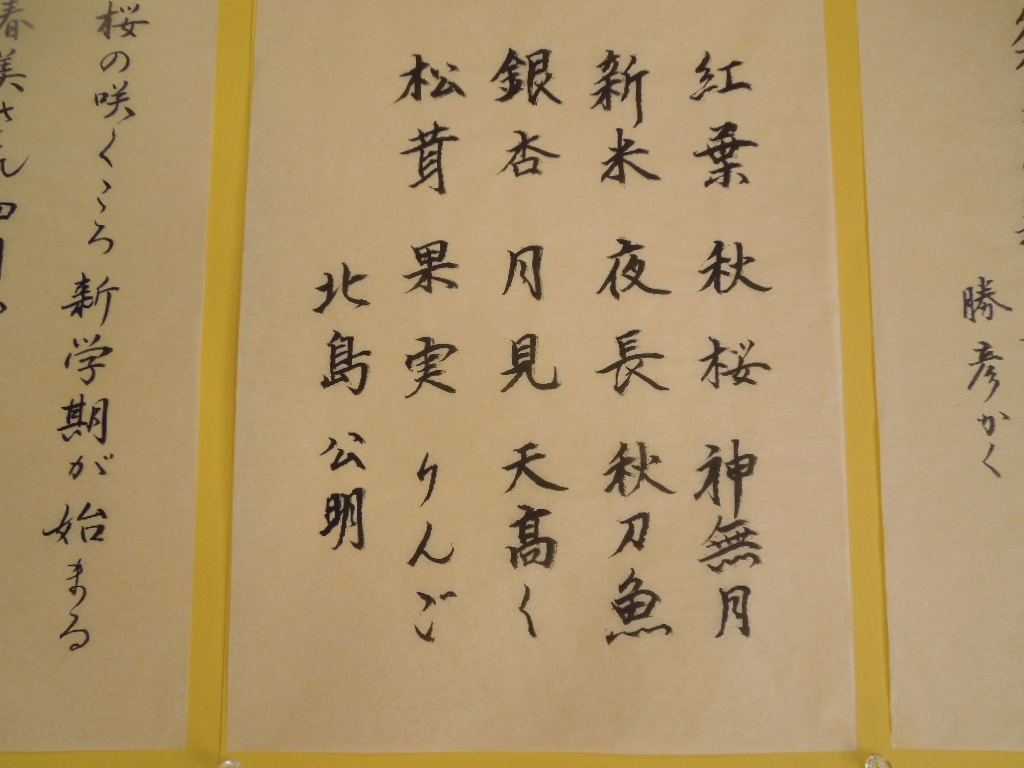 勝彦かく
紅葉 秋桜 神無月
新米 夜長 秋刀魚
銀杏 月見 天高く
松茸 果実 りんご
北島 公明
桜の咲くころ 新学期が始まる
春美さん 四月